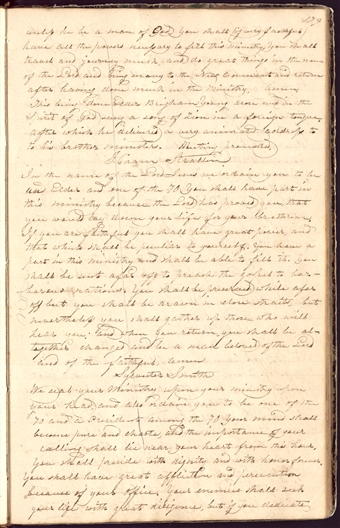 179
unless he be a man of God, you shall (if very faithful)
have all the powers necessary to fill this ministry You shall
travel and journey much, and do great things in the name
of the Lord and bring many to the New Covenant and return
after having done much in the ministry. Amen
This being done Elder Brigham Young arose and in the
Spirit of God sung a song of Zion in a foreign tongue
after which he delivered a very animated address to
to his brother ministers. Meeting proceeded,
Hazen Stratton
In the name of the Lord Jesus we ordain you to be
an Elder and one of the 70 You shall have part in
this ministry because the Lord has proved you that
you would lay down your life for your brethren.
If you are faithful you shall have great power, and
that which shall be peculiar to yourself. You have a
part in this ministry and shall be able to fill it. You
shall be sent afar off to preach the Gospel to bar-
barous nations. You shall be preserved while afar
off but you shall be drawn in close straits, but
nevertheless you shall gather up those who will
hear you; and when you return you shall be al-
together changed and be a man beloved of the Lord
and of the faithful, amen
Sylvester Smith
We seal your Ministry upon your
your head, and also ordain you to be one of the
70 and a President among the 70 Your mind shall
become pure and chaste, and the importance of your
calling shall lie near your heart from this hour,
You shall preside with dignity and with honor forever,
You shall have great affliction and persecution
because of your office, your enemies shall seek
your life with great diligence, but if you dedicate